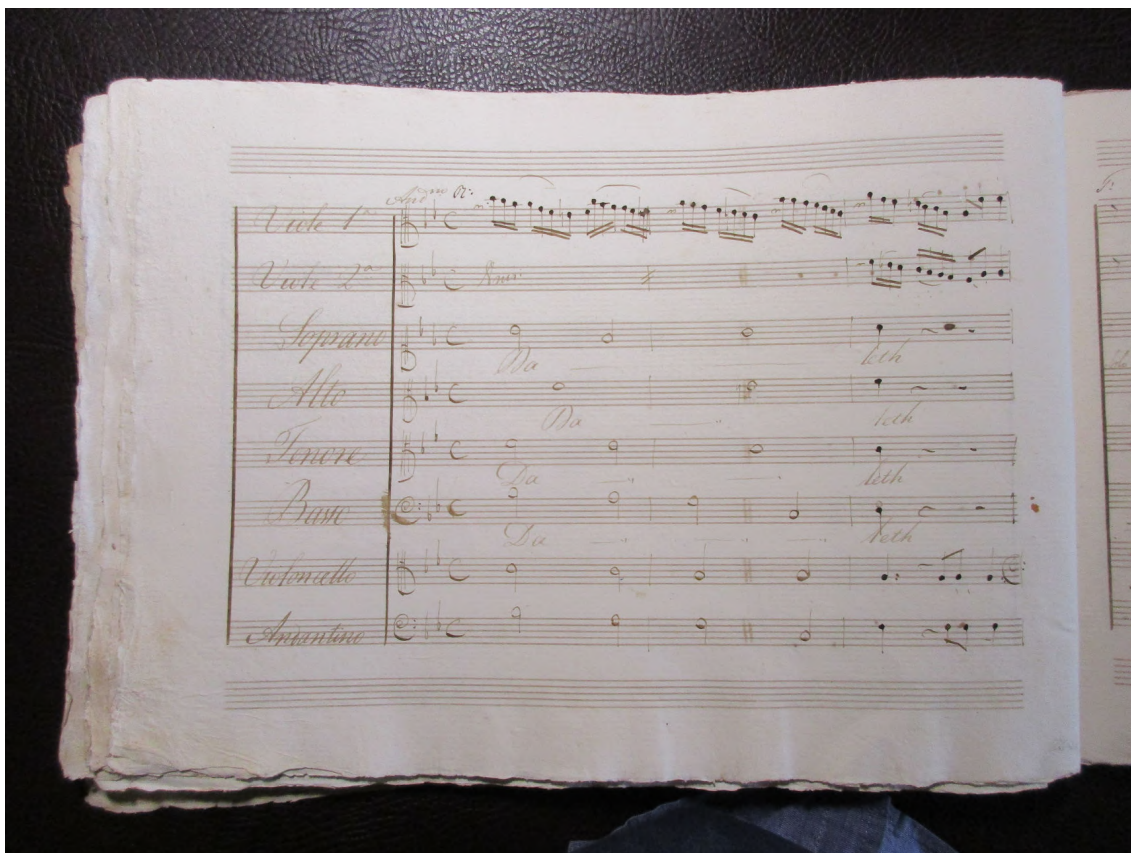 And.no
Viole 1.a
Viole 2.a
Unis:
Soprano
Da leth
Alto
Da leth
Tenore
Da leth
Basso
Da leth
Violoncello
Andantino